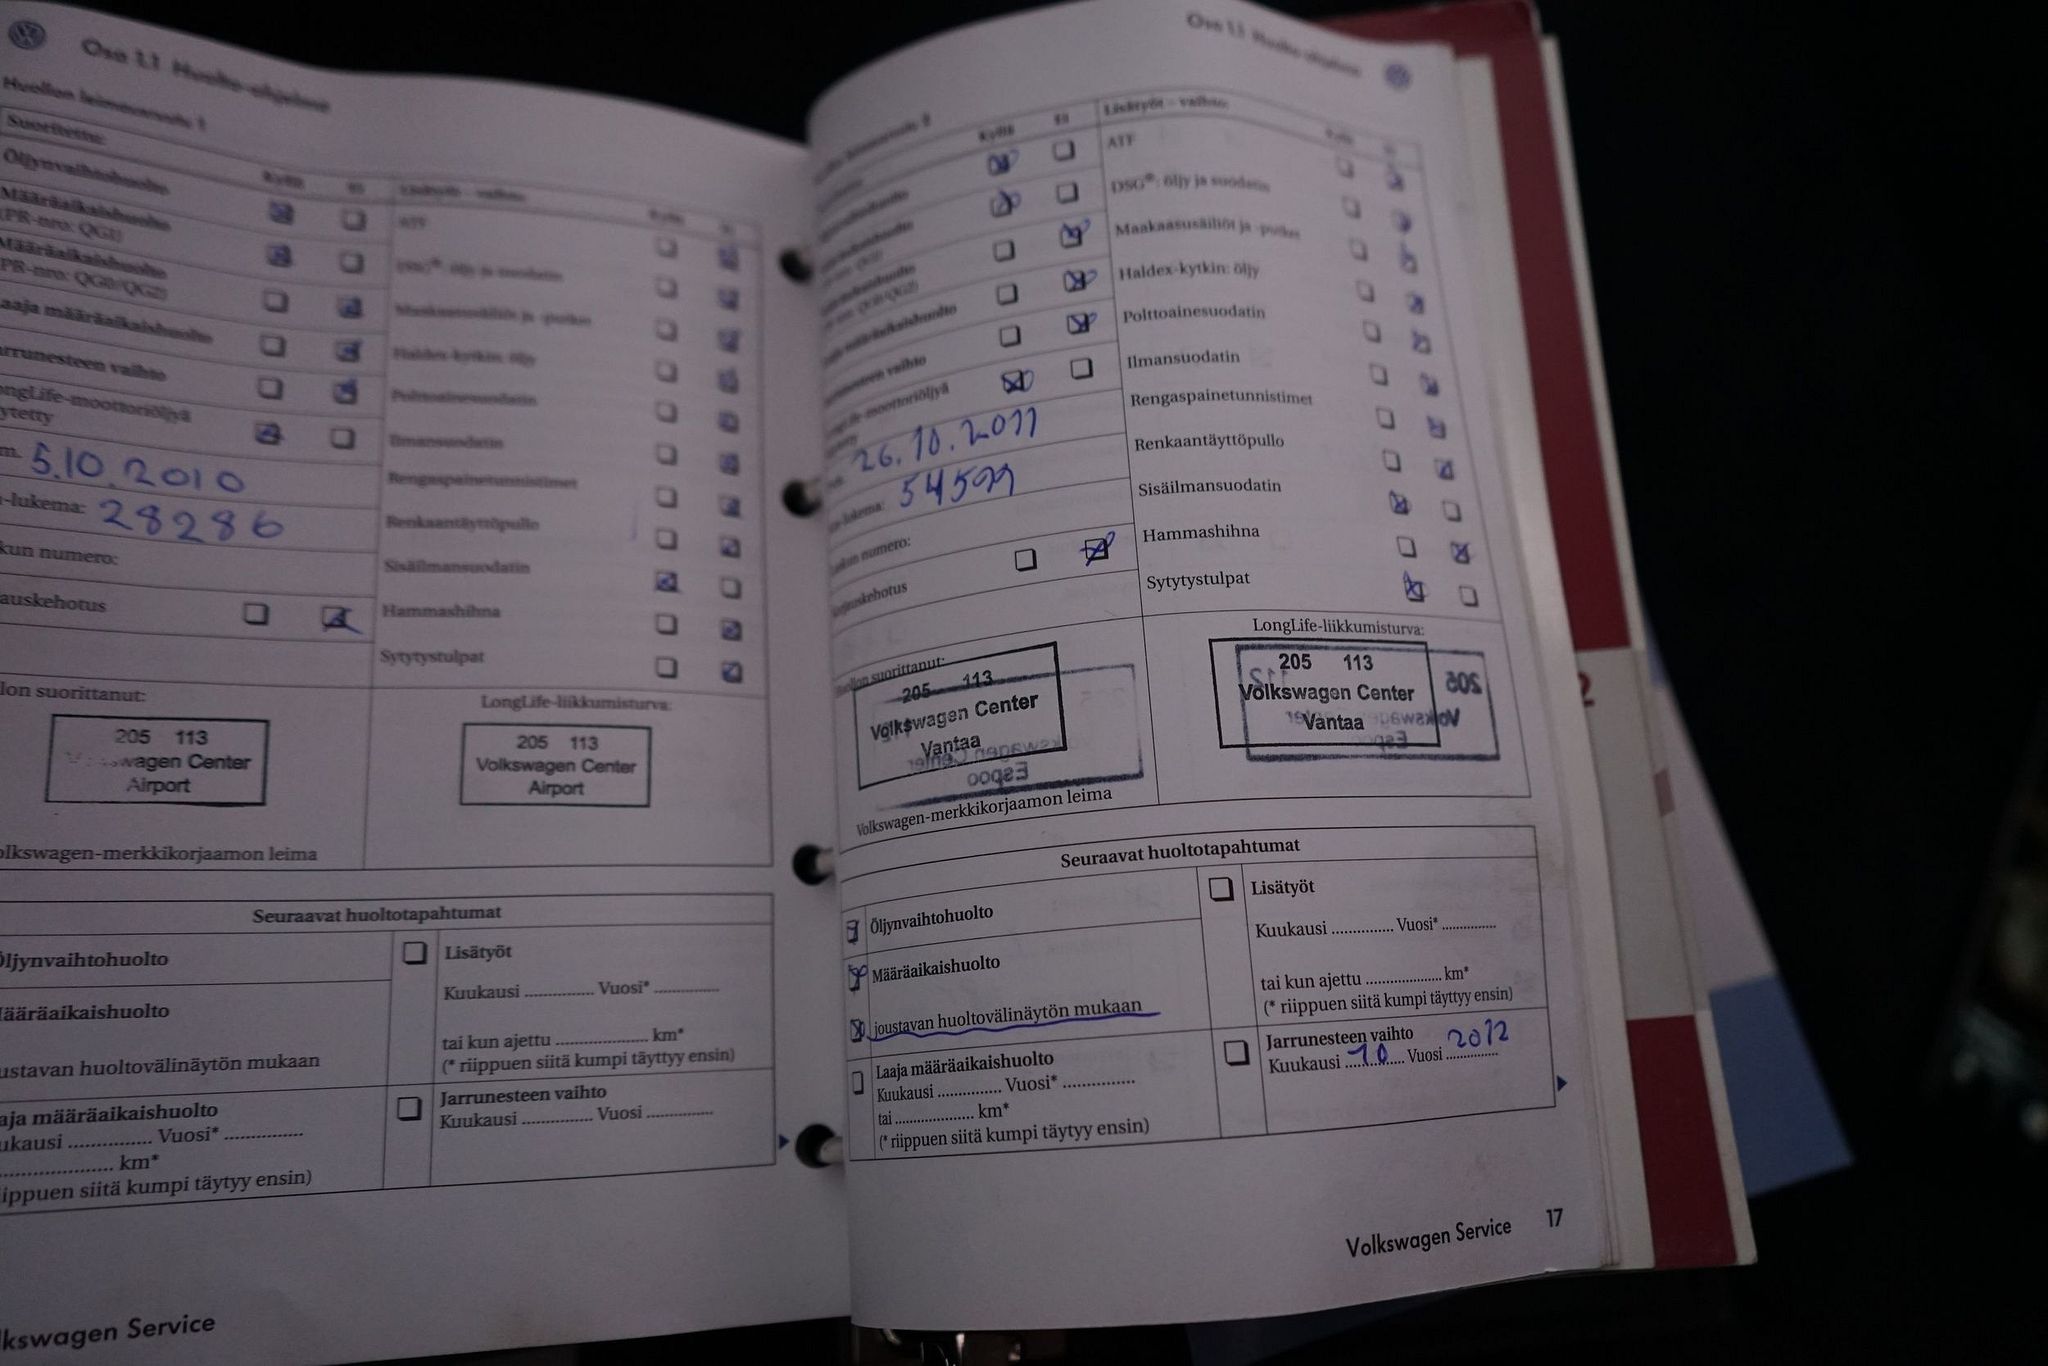 Osa 1.1 Huolto-ohjelma
Huollon leimaussivu 1
Suoritettu:
Kyllä
Ei
Öljynvaihtohuolto
Määräaikaishuolto
(PR-nro: QG1)
Määräaikaishuolto
PR-nro: QG0/QG2)
aaja määräaikaishuolto
arrunesteen vaihto
ongLife-moottoriöljyä
ytetty
m. 5.10.2010
-lukema: 28286
kun numero:
auskehotus
Lisätyöt - vaihto:
ATF
DSG®: öljy ja suodatin
Maakaasusäiliöt ja -putket
Haldex-kytkin: öljy
Polttoainesuodatin
Ilmansuodatin
Rengaspainetunnistimet
Renkaantäyttöpullo
Sisäilmansuodatin
Hammashihna
Sytytystulpat
lon suorittanut:
205 113
wagen Center
Airport
olkswagen-merkkikorjaamon leima
LongLife-liikkumisturva:
205 113
Volkswagen Center
Airport
Seuraavat huoltotapahtumat
Öljynvaihtohuolto
Määräaikaishuolto
ustavan huoltovälinäytön mukaan
aja määräaikaishuolto
ukausi ................ Vuosi* ...............
...................... km*
iippuen siitä kumpi täytyy ensin)
Lisätyöt
Kuukausi .............. Vuosi* ..............
tai kun ajettu .................... km*
(* riippuen siitä kumpi täyttyy ensin)
Jarrunesteen vaihto
Kuukausi .............. Vuosi ..............
kswagen Service
Osa 1.1 Huolto-ohjelma
Kyllä
Ei
ongLife-moottoriöljyä
26.10.2011
-lukema: 54599
kun numero:
Lisätyöt - vaihto:
ATF
DSG®: öljy ja suodatin
Maakaasusäiliöt ja -putket
Haldex-kytkin: öljy
Polttoainesuodatin
Ilmansuodatin
Rengaspainetunnistimet
Renkaantäyttöpullo
Sisäilmansuodatin
Hammashihna
Sytytystulpat
Huollon suorittanut:
205 113
Volkswagen Center
Vantaa
Volkswagen-merkkikorjaamon leima
LongLife-liikkumisturva:
205 113
Volkswagen Center
Vantaa
Seuraavat huoltotapahtumat
Öljynvaihtohuolto
Määräaikaishuolto
joustavan huoltovälinäytön mukaan
Laaja määräaikaishuolto
Kuukausi .............. Vuosi* ...............
tai ................ km*
(* riippuen siitä kumpi täytyy ensin)
Lisätyöt
Kuukausi .............. Vuosi* .............
tai kun ajettu .................... km*
(* riippuen siitä kumpi täyttyy ensin)
Jarrunesteen vaihto
Kuukausi 10 Vuosi 2012
Volkswagen Service 17